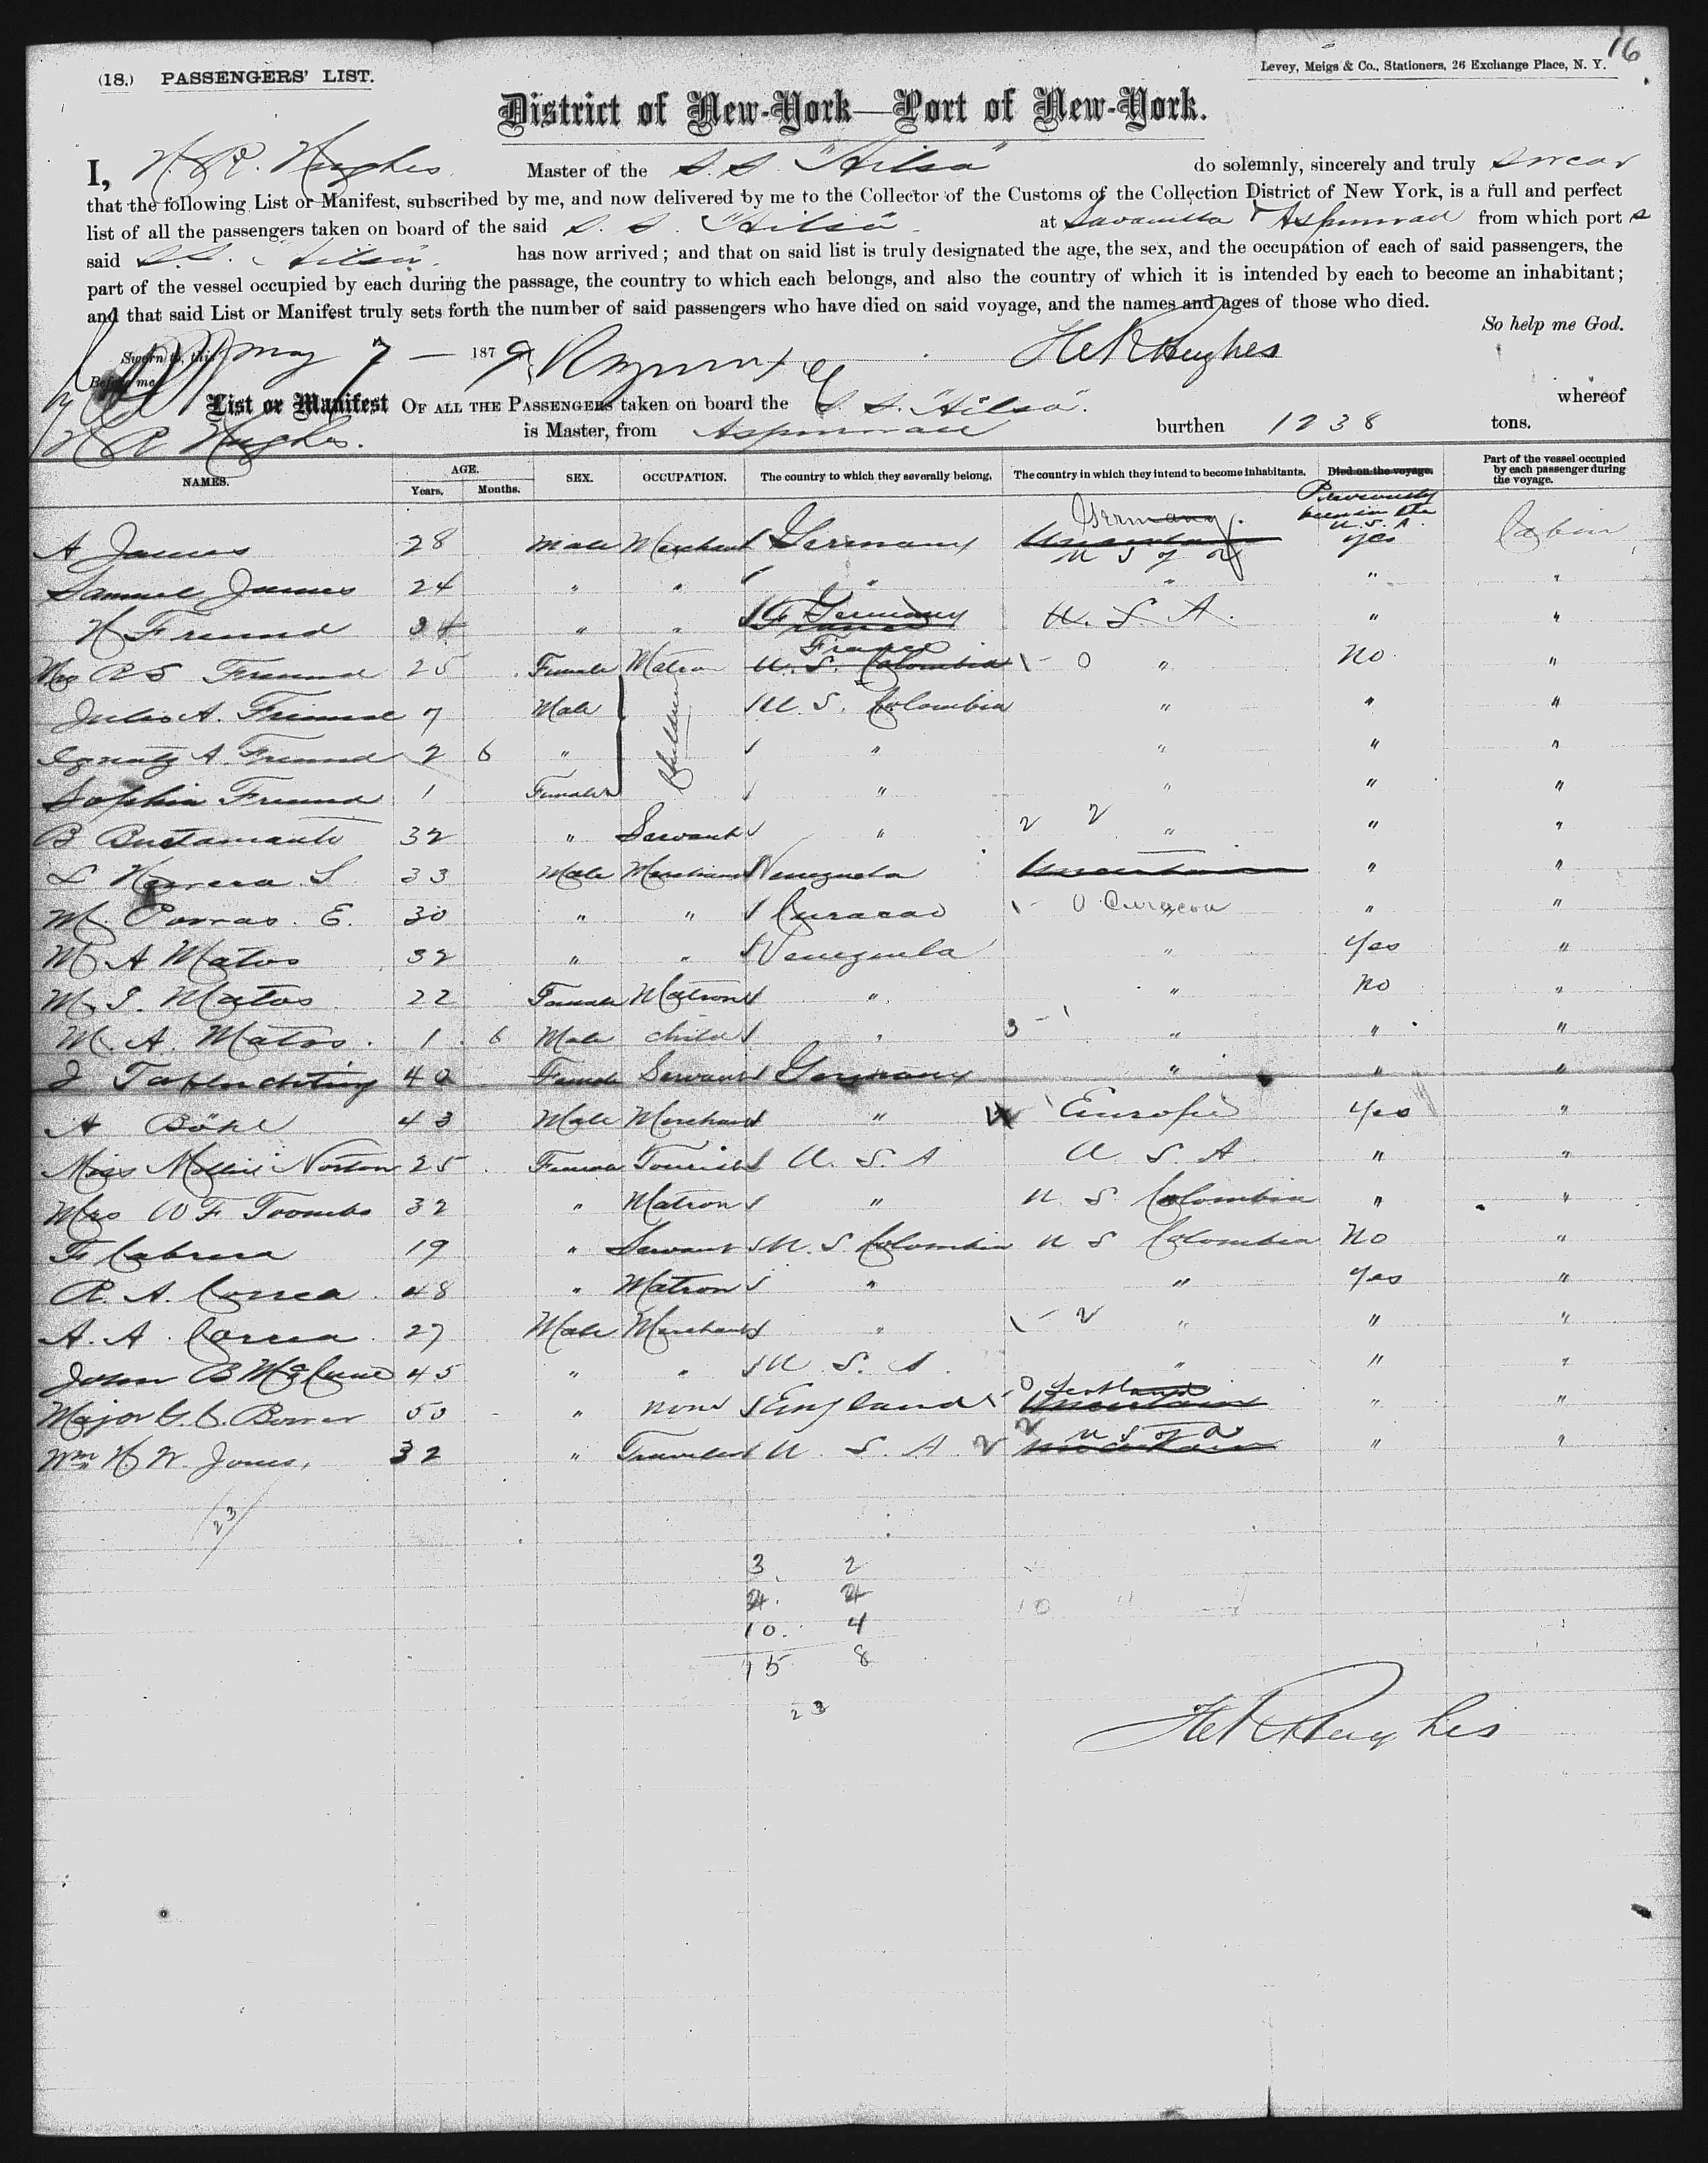 16
(18.) PASSENGERS' LIST.
Levey, Meigs & Co., Stationers, 26 Exchange Place, N. Y.
District of New-York—Port of New-York.
I, H. R. Hughes Master of the S.S. "Ailsa" do solemnly, sincerely and truly swear
that the following List or Manifest, subscribed by me, and now delivered by me to the Collector of the Customs of the Collection District of New York, is a full and perfect
list of all the passengers taken on board of the said S. S. "Ailsa" at Savanilla & Aspinwall from which port s
said S.S. "Ailsa" has now arrived; and that on said list is truly designated the age, the sex, and the occupation of each of said passengers, the
part of the vessel occupied by each during the passage, the country to which each belongs, and also the country of which it is intended by each to become an inhabitant;
and that said List or Manifest truly sets forth the number of said passengers who have died on said voyage, and the names and ages of those who died.
So help me God.
Sworn to, this May 7 — 1879 H R Hughes
Before me
List or Manifest OF ALL THE PASSENGERS taken on board the S. S. "Ailsa". whereof
H R Hughes. is Master, from Aspinwall burthen 1238 tons.
NAMES. AGE. Years. Months. SEX. OCCUPATION. The country to which they severally belong. The country in which they intend to become inhabitants. Died on the voyage. Part of the vessel occupied by each passenger during the voyage.
Previously been in the U.S.A.
A James 28 Male Merchant Germany Germany Uncertain U S of A yes Cabin
Samuel James 24 " " " " " "
H Freund 34 " " Germany France U. S. A. " "
Mrs R S Freund 25 Female Matron France U. S. Colombia 1 - 0 " No "
Julio A. Freund 7 Male Children U. S. Colombia " " "
Ignatz A. Freund 2 6 " " " " "
Sophia Freund 1 Female " " " "
B Bustamante 32 " Servant " 2 2 " " "
L Herrera S 33 Male Merchant Venezuela Uncertain " "
M. Porras. E. 30 " " Curacao 1 - 0 Curacoa " "
M A Matos 32 " " Venezuela " Yes "
M. I. Matos 22 Female Matron " " No "
M. A. Matos. 1 6 Male child " 3 - 1 " " "
40 Female Servant Germany " " "
A Böhl 43 Male Merchant " Europe Yes "
Miss Mollie Norton 25 Female Tourist U. S. A U S A " "
Mrs W F Toombs 32 " Matron " U S Colombia " "
F Cabrera 19 " Servant U. S. Colombia U S Colombia No "
R. A. Correa 48 " Matron " " Yes "
A. A. Correa 27 Male Merchant " 1 - 2 " " "
John B McCune 45 " " U. S. A. " " "
Major G. C. 50 " none England 0 Scotland Uncertain " "
Wm H. W. Jones, 32 " Traveler U S A 2 2 U S of A Uncertain " "
23
3 2
2 2
10 4
15 8
23
H R Hughes